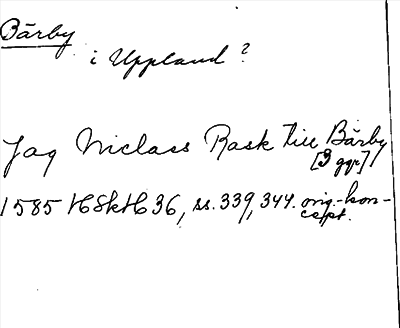 Bärby
i Uppland?
Jag Niclass Rask till Bärby
[3 ggr]
1585 HSkH 36, ss. 339, 344. orig.-kon-
cept.